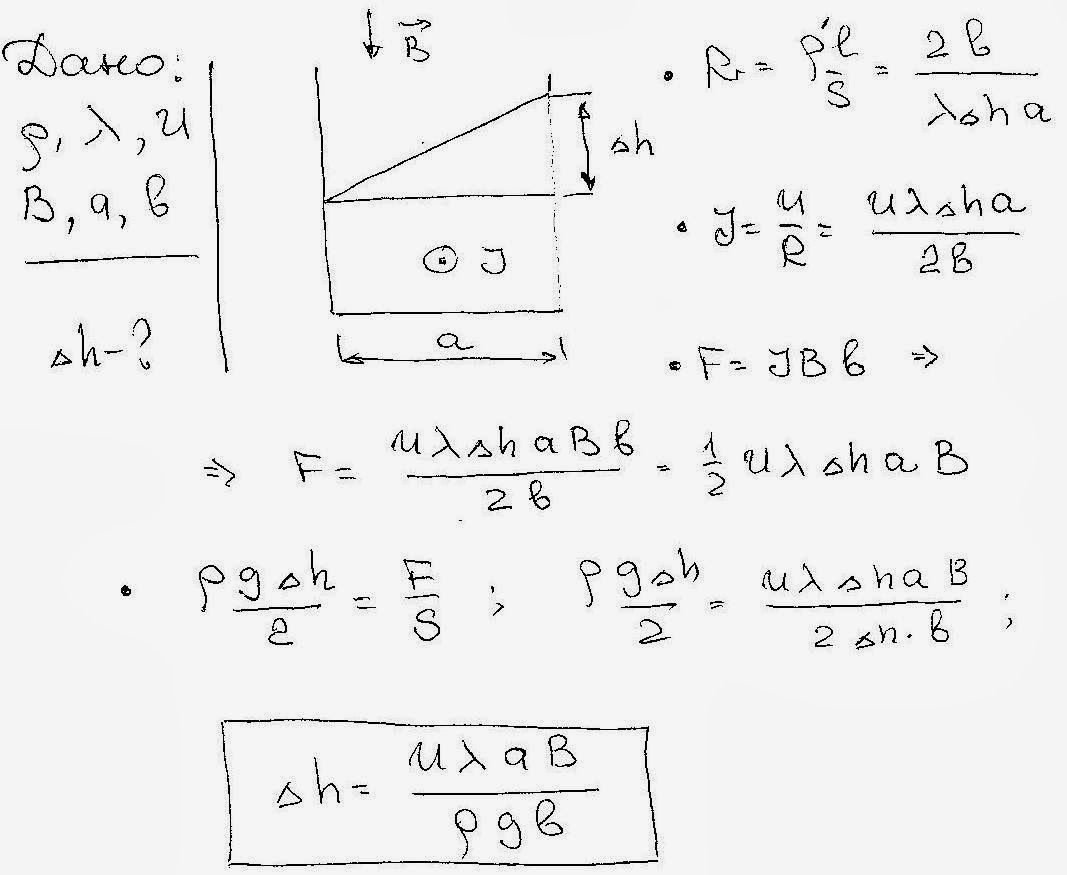 Дано:
ρ, λ, U
B, a, b
Δh-?
B⃗
Δh
⊙ J
a
• R = ρ'l/S = 2b/λΔha
• J = U/R = UλΔha/2b
• F = JBb ⇒
⇒ F = UλΔhaBb/2b = 1/2 UλΔhaB
• ρgΔh/2 = F/S ; ρgΔh/2 = UλΔhaB/2Δh·b ;
Δh = UλaB/ρgb